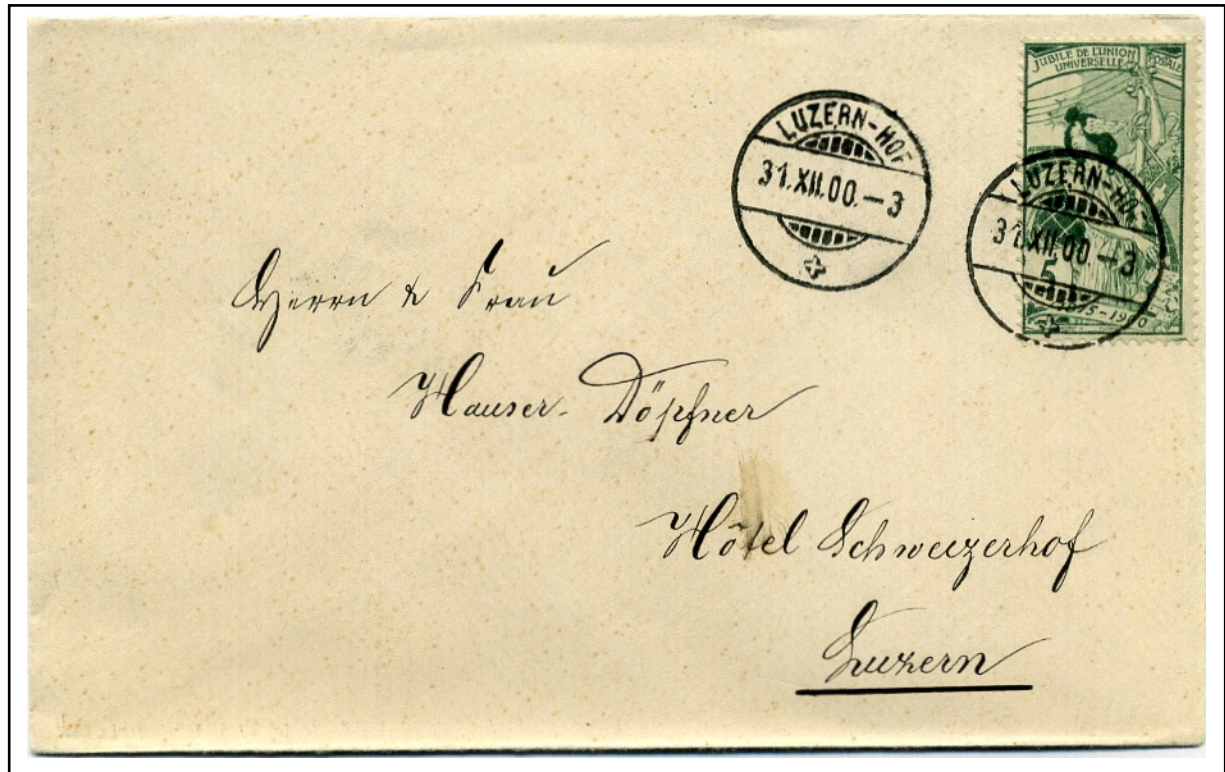 JUBILE DE L'UNION POSTALE
UNIVERSELLE
LUZERN-HOF
31.XII.00.-3
LUZERN-HOF
31.XII.00.-3
5
1875-1900
Herrn & Frau
Hauser-Döpfner
Hôtel Schweizerhof
Luzern